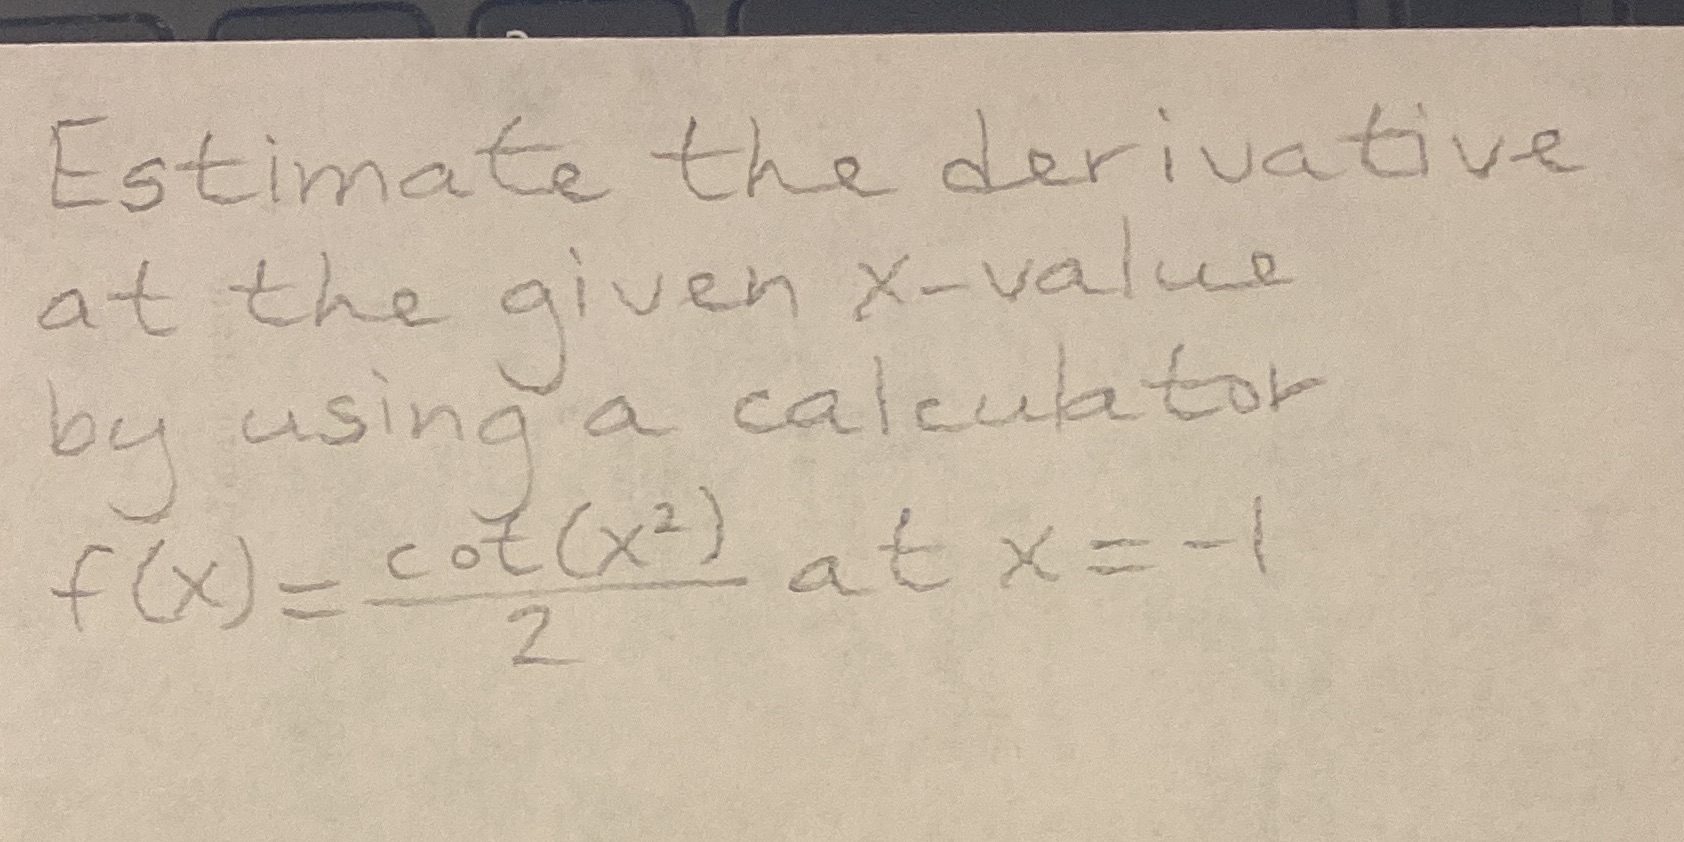 Estimate the derivative
at the given x-value
by using a calculator
f(x) = cot(x²)/2 at x = -1